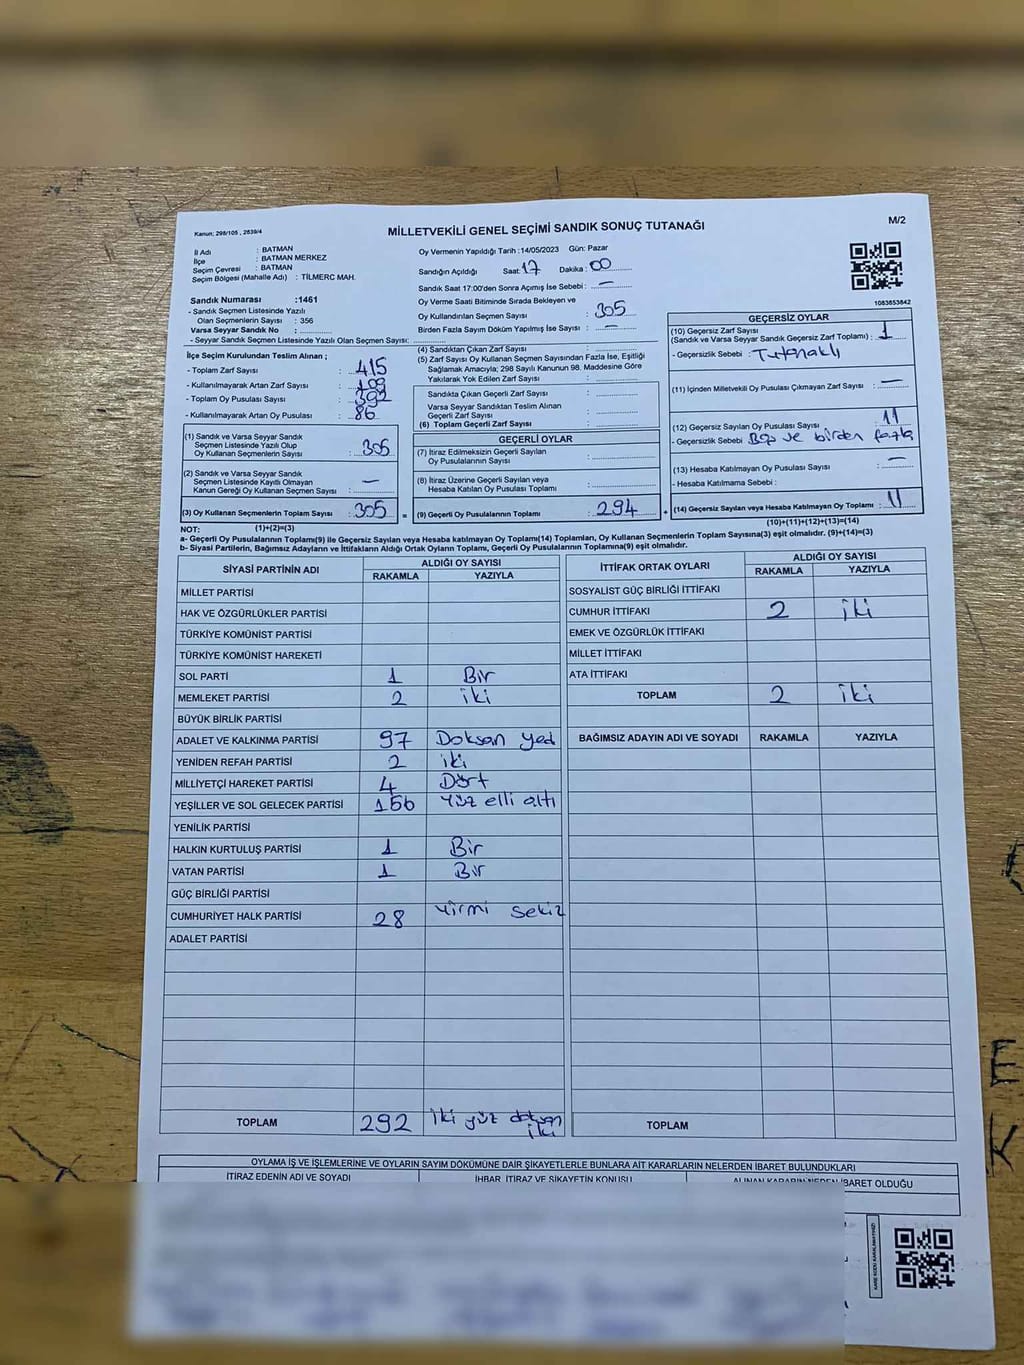 Kanun; 298/105 , 2839/4
MİLLETVEKİLİ GENEL SEÇİMİ SANDIK SONUÇ TUTANAĞI
M/2
İl Adı : BATMAN
İlçe : BATMAN MERKEZ
Seçim Çevresi : BATMAN
Seçim Bölgesi (Mahalle Adı) : TİLMERC MAH.
Sandık Numarası :1461
- Sandık Seçmen Listesinde Yazılı
Olan Seçmenlerin Sayısı : 356
Varsa Seyyar Sandık No :
- Seyyar Sandık Seçmen Listesinde Yazılı Olan Seçmen Sayısı:
Oy Vermenin Yapıldığı Tarih :14/05/2023 Gün: Pazar
Sandığın Açıldığı Saat: 17 Dakika : 00
Sandık Saat 17:00'den Sonra Açımış İse Sebebi : —
Oy Verme Saati Bitiminde Sırada Bekleyen ve
Oy Kullandırılan Seçmen Sayısı : 305
Birden Fazla Sayım Döküm Yapılmış İse Sayısı : —
1083853842
İlçe Seçim Kurulundan Teslim Alınan ;
- Toplam Zarf Sayısı : 415
- Kullanılmayarak Artan Zarf Sayısı : 109
- Toplam Oy Pusulası Sayısı : 392
- Kullanılmayarak Artan Oy Pusulası : 86
(1) Sandık ve Varsa Seyyar Sandık
Seçmen Listesinde Yazılı Olup
Oy Kullanan Seçmenlerin Sayısı : 305
(2) Sandık ve Varsa Seyyar Sandık
Seçmen Listesinde Kayıtlı Olmayan
Kanun Gereği Oy Kullanan Seçmen Sayısı : —
(3) Oy Kullanan Seçmenlerin Toplam Sayısı : 305
(4) Sandıktan Çıkan Zarf Sayısı :
(5) Zarf Sayısı Oy Kullanan Seçmen Sayısından Fazla İse, Eşitliği
Sağlamak Amacıyla; 298 Sayılı Kanunun 98. Maddesine Göre
Yakılarak Yok Edilen Zarf Sayısı :
Sandıkta Çıkan Geçerli Zarf Sayısı :
Varsa Seyyar Sandıktan Teslim Alınan
Geçerli Zarf Sayısı :
(6) Toplam Geçerli Zarf Sayısı :
GEÇERLİ OYLAR
(7) İtiraz Edilmeksizin Geçerli Sayılan
Oy Pusulalarının Sayısı :
(8) İtiraz Üzerine Geçerli Sayılan veya
Hesaba Katılan Oy Pusulası Toplamı :
= (9) Geçerli Oy Pusulalarının Toplamı : 294
GEÇERSİZ OYLAR
(10) Geçersiz Zarf Sayısı
(Sandık ve Varsa Seyyar Sandık Geçersiz Zarf Toplamı) : 1
- Geçersizlik Sebebi : Tutanaklı
(11) İçinden Milletvekili Oy Pusulası Çıkmayan Zarf Sayısı : —
(12) Geçersiz Sayılan Oy Pusulası Sayısı : 11
- Geçersizlik Sebebi Boş ve birden fazla
(13) Hesaba Katılmayan Oy Pusulası Sayısı : —
- Hesaba Katılmama Sebebi :
(14) Geçersiz Sayılan veya Hesaba Katılmayan Oy Toplamı : 11
NOT: (1)+(2)=(3) (10)+(11)+(12)+(13)=(14)
a- Geçerli Oy Pusulalarının Toplamı(9) ile Geçersiz Sayılan veya Hesaba Katılmayan Oy Toplamı(14) Toplamları, Oy Kullanan Seçmenlerin Toplam Sayısına(3) eşit olmalıdır. (9)+(14)=(3)
b- Siyasi Partilerin, Bağımsız Adayların ve İttifakların Aldığı Ortak Oyların Toplamı, Geçerli Oy Pusulalarının Toplamına(9) eşit olmalıdır.
SİYASİ PARTİNİN ADI ALDIĞI OY SAYISI
RAKAMLA YAZIYLA
MİLLET PARTİSİ
HAK VE ÖZGÜRLÜKLER PARTİSİ
TÜRKİYE KOMÜNİST PARTİSİ
TÜRKİYE KOMÜNİST HAREKETİ
SOL PARTİ 1 Bir
MEMLEKET PARTİSİ 2 iki
BÜYÜK BİRLİK PARTİSİ
ADALET VE KALKINMA PARTİSİ 97 Doksan yedi
YENİDEN REFAH PARTİSİ 2 iki
MİLLİYETÇİ HAREKET PARTİSİ 4 Dört
YEŞİLLER VE SOL GELECEK PARTİSİ 156 Yüz elli altı
YENİLİK PARTİSİ
HALKIN KURTULUŞ PARTİSİ 1 Bir
VATAN PARTİSİ 1 Bir
GÜÇ BİRLİĞİ PARTİSİ
CUMHURİYET HALK PARTİSİ 28 Yirmi sekiz
ADALET PARTİSİ
TOPLAM 292 İki yüz doksan
iki
İTTİFAK ORTAK OYLARI ALDIĞI OY SAYISI
RAKAMLA YAZIYLA
SOSYALİST GÜÇ BİRLİĞİ İTTİFAKI
CUMHUR İTTİFAKI 2 iki
EMEK VE ÖZGÜRLÜK İTTİFAKI
MİLLET İTTİFAKI
ATA İTTİFAKI
TOPLAM 2 iki
BAĞIMSIZ ADAYIN ADI VE SOYADI RAKAMLA YAZIYLA
TOPLAM
OYLAMA İŞ VE İŞLEMLERİNE VE OYLARIN SAYIM DÖKÜMÜNE DAİR ŞİKAYETLERLE BUNLARA AİT KARARLARIN NELERDEN İBARET BULUNDUKLARI
İTİRAZ EDENİN ADI VE SOYADI İHBAR, İTİRAZ VE ŞİKAYETİN KONUSU ALINAN KARARIN NEDEN İBARET OLDUĞU
E
K